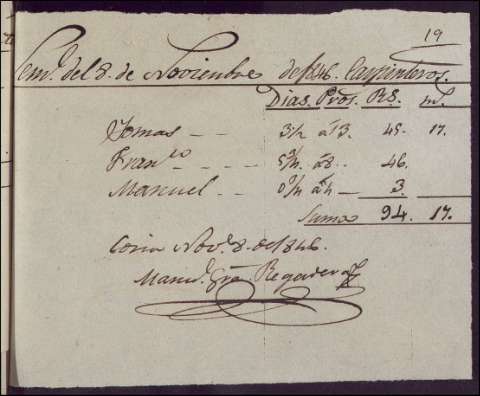 19
Semª del 8. de Noviembre de 1846. Carpinteros.
Dias. Pros. RS. mˢ.
Tomas - - 3½ á 13. 45. 17.
Franᶜᵒ - - - á 8. 46.
Manuel - - á - 3.
Suma 94. 17.
Coria Novᵉ 8. de 1846.
Manˡ Gᵃ Regadera